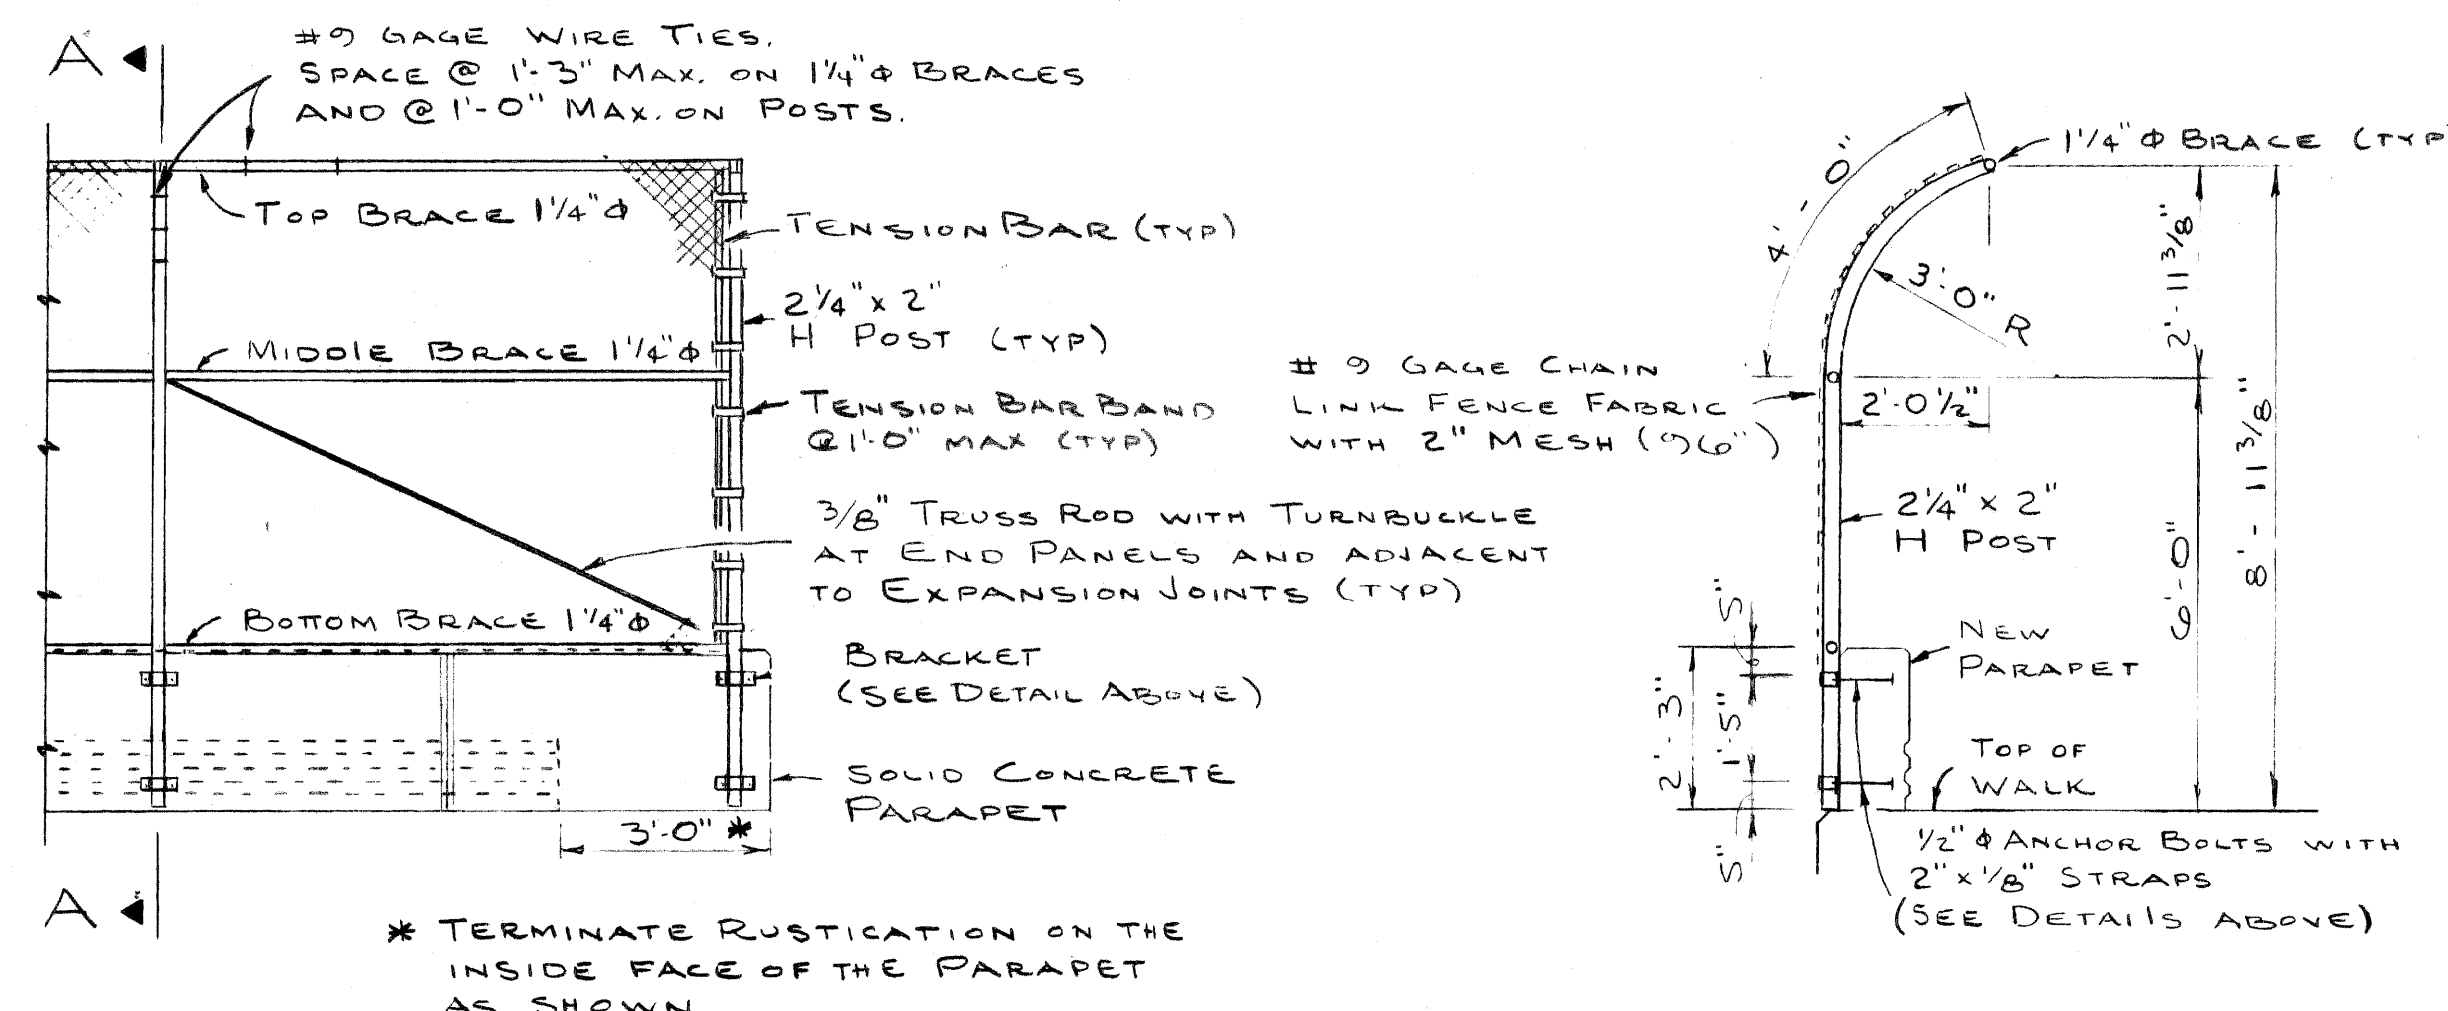 A
#9 GAGE WIRE TIES.
SPACE @ 1'-3" MAX. ON 1 1/4" Φ BRACES
AND @ 1'-0" MAX. ON POSTS.
TOP BRACE 1 1/4" Φ
TENSION BAR (TYP)
2 1/4" x 2"
H POST (TYP)
MIDDLE BRACE 1 1/4" Φ
TENSION BAR BAND
@ 1'-0" MAX (TYP)
3/8" TRUSS ROD WITH TURNBUCKLE
AT END PANELS AND ADJACENT
TO EXPANSION JOINTS (TYP)
BOTTOM BRACE 1 1/4" Φ
BRACKET
(SEE DETAIL ABOVE)
SOLID CONCRETE
PARAPET
3'-0" *
A
* TERMINATE RUSTICATION ON THE
INSIDE FACE OF THE PARAPET
AS SHOWN
4'-0"
1 1/4" Φ BRACE (TYP
3'-0" R
2'-11 3/8"
# 9 GAGE CHAIN
LINK FENCE FABRIC
WITH 2" MESH (96")
2'-0 1/2"
8'-11 3/8"
2 1/4" x 2"
H POST
6'-0"
5"
NEW
PARAPET
2'-3"
1'-5"
TOP OF
WALK
5"
1/2" Φ ANCHOR BOLTS WITH
2" x 1/8" STRAPS
(SEE DETAILS ABOVE)